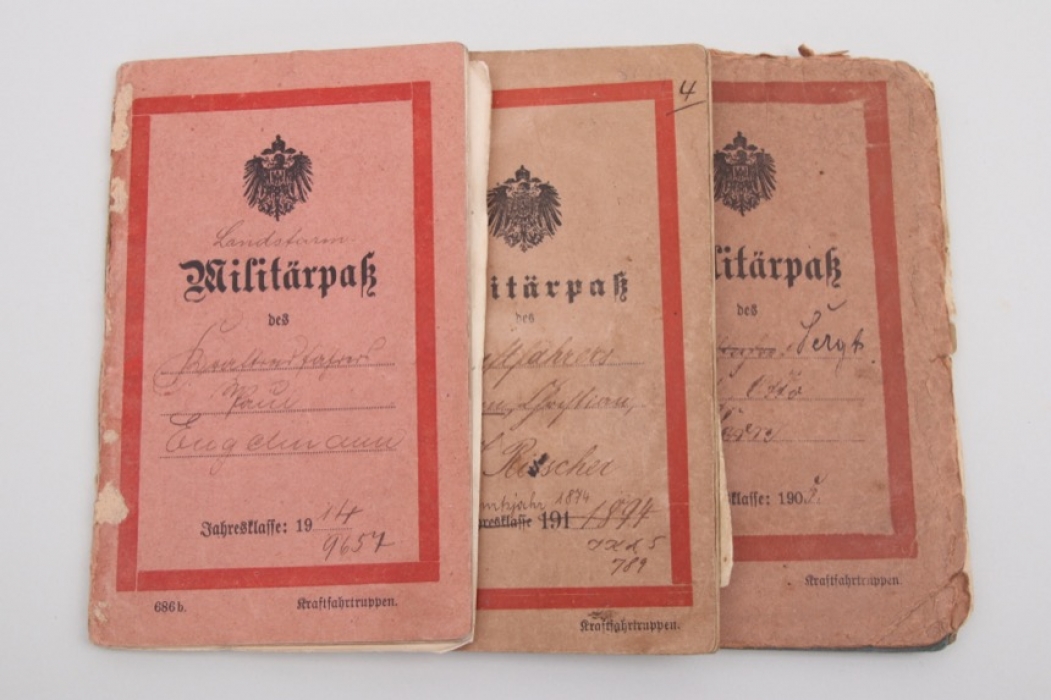 Landsturm
Militärpaß
des
Kraftfahrers
Paul
Engelmann
Jahresklasse: 19 14
9657
686 b.
Kraftfahrtruppen.
4
itärpaß
des
ftfahrers
Christian,
Rischer
1874
resklasse 191 1894
789
Kraftfahrtruppen.
litärpaß
des
Sergt.
Otto
klasse: 190
Kraftfahrtruppen